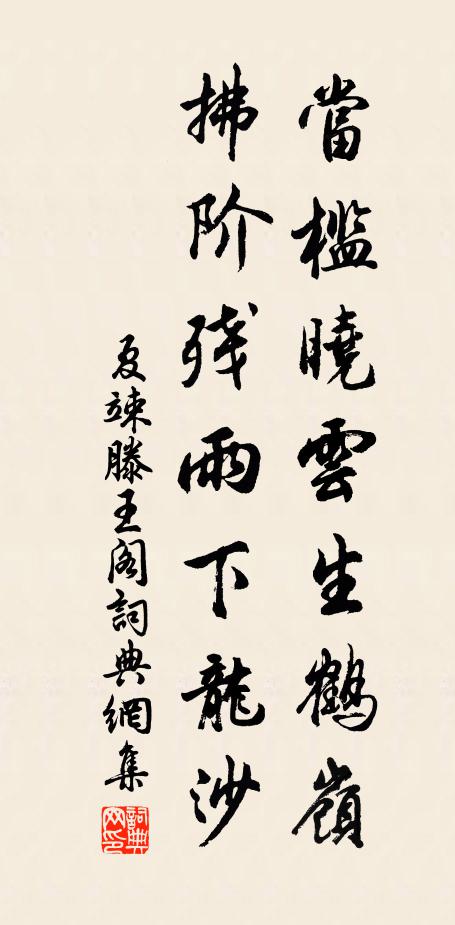 當檻曉雲生鶴嶺
拂阶残雨下龍沙
夏竦滕王阁詞典網集
詞典网印